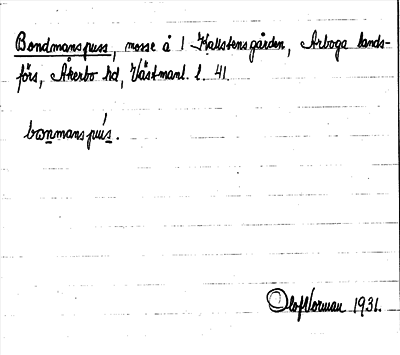 Bondmanspuss, mosse å 1 Hallstensgården, Arboga lands-
förs, Åkerbo hd, Västmanl. l. 41.
bωnmanspus̀.
Olof Norman 1931.